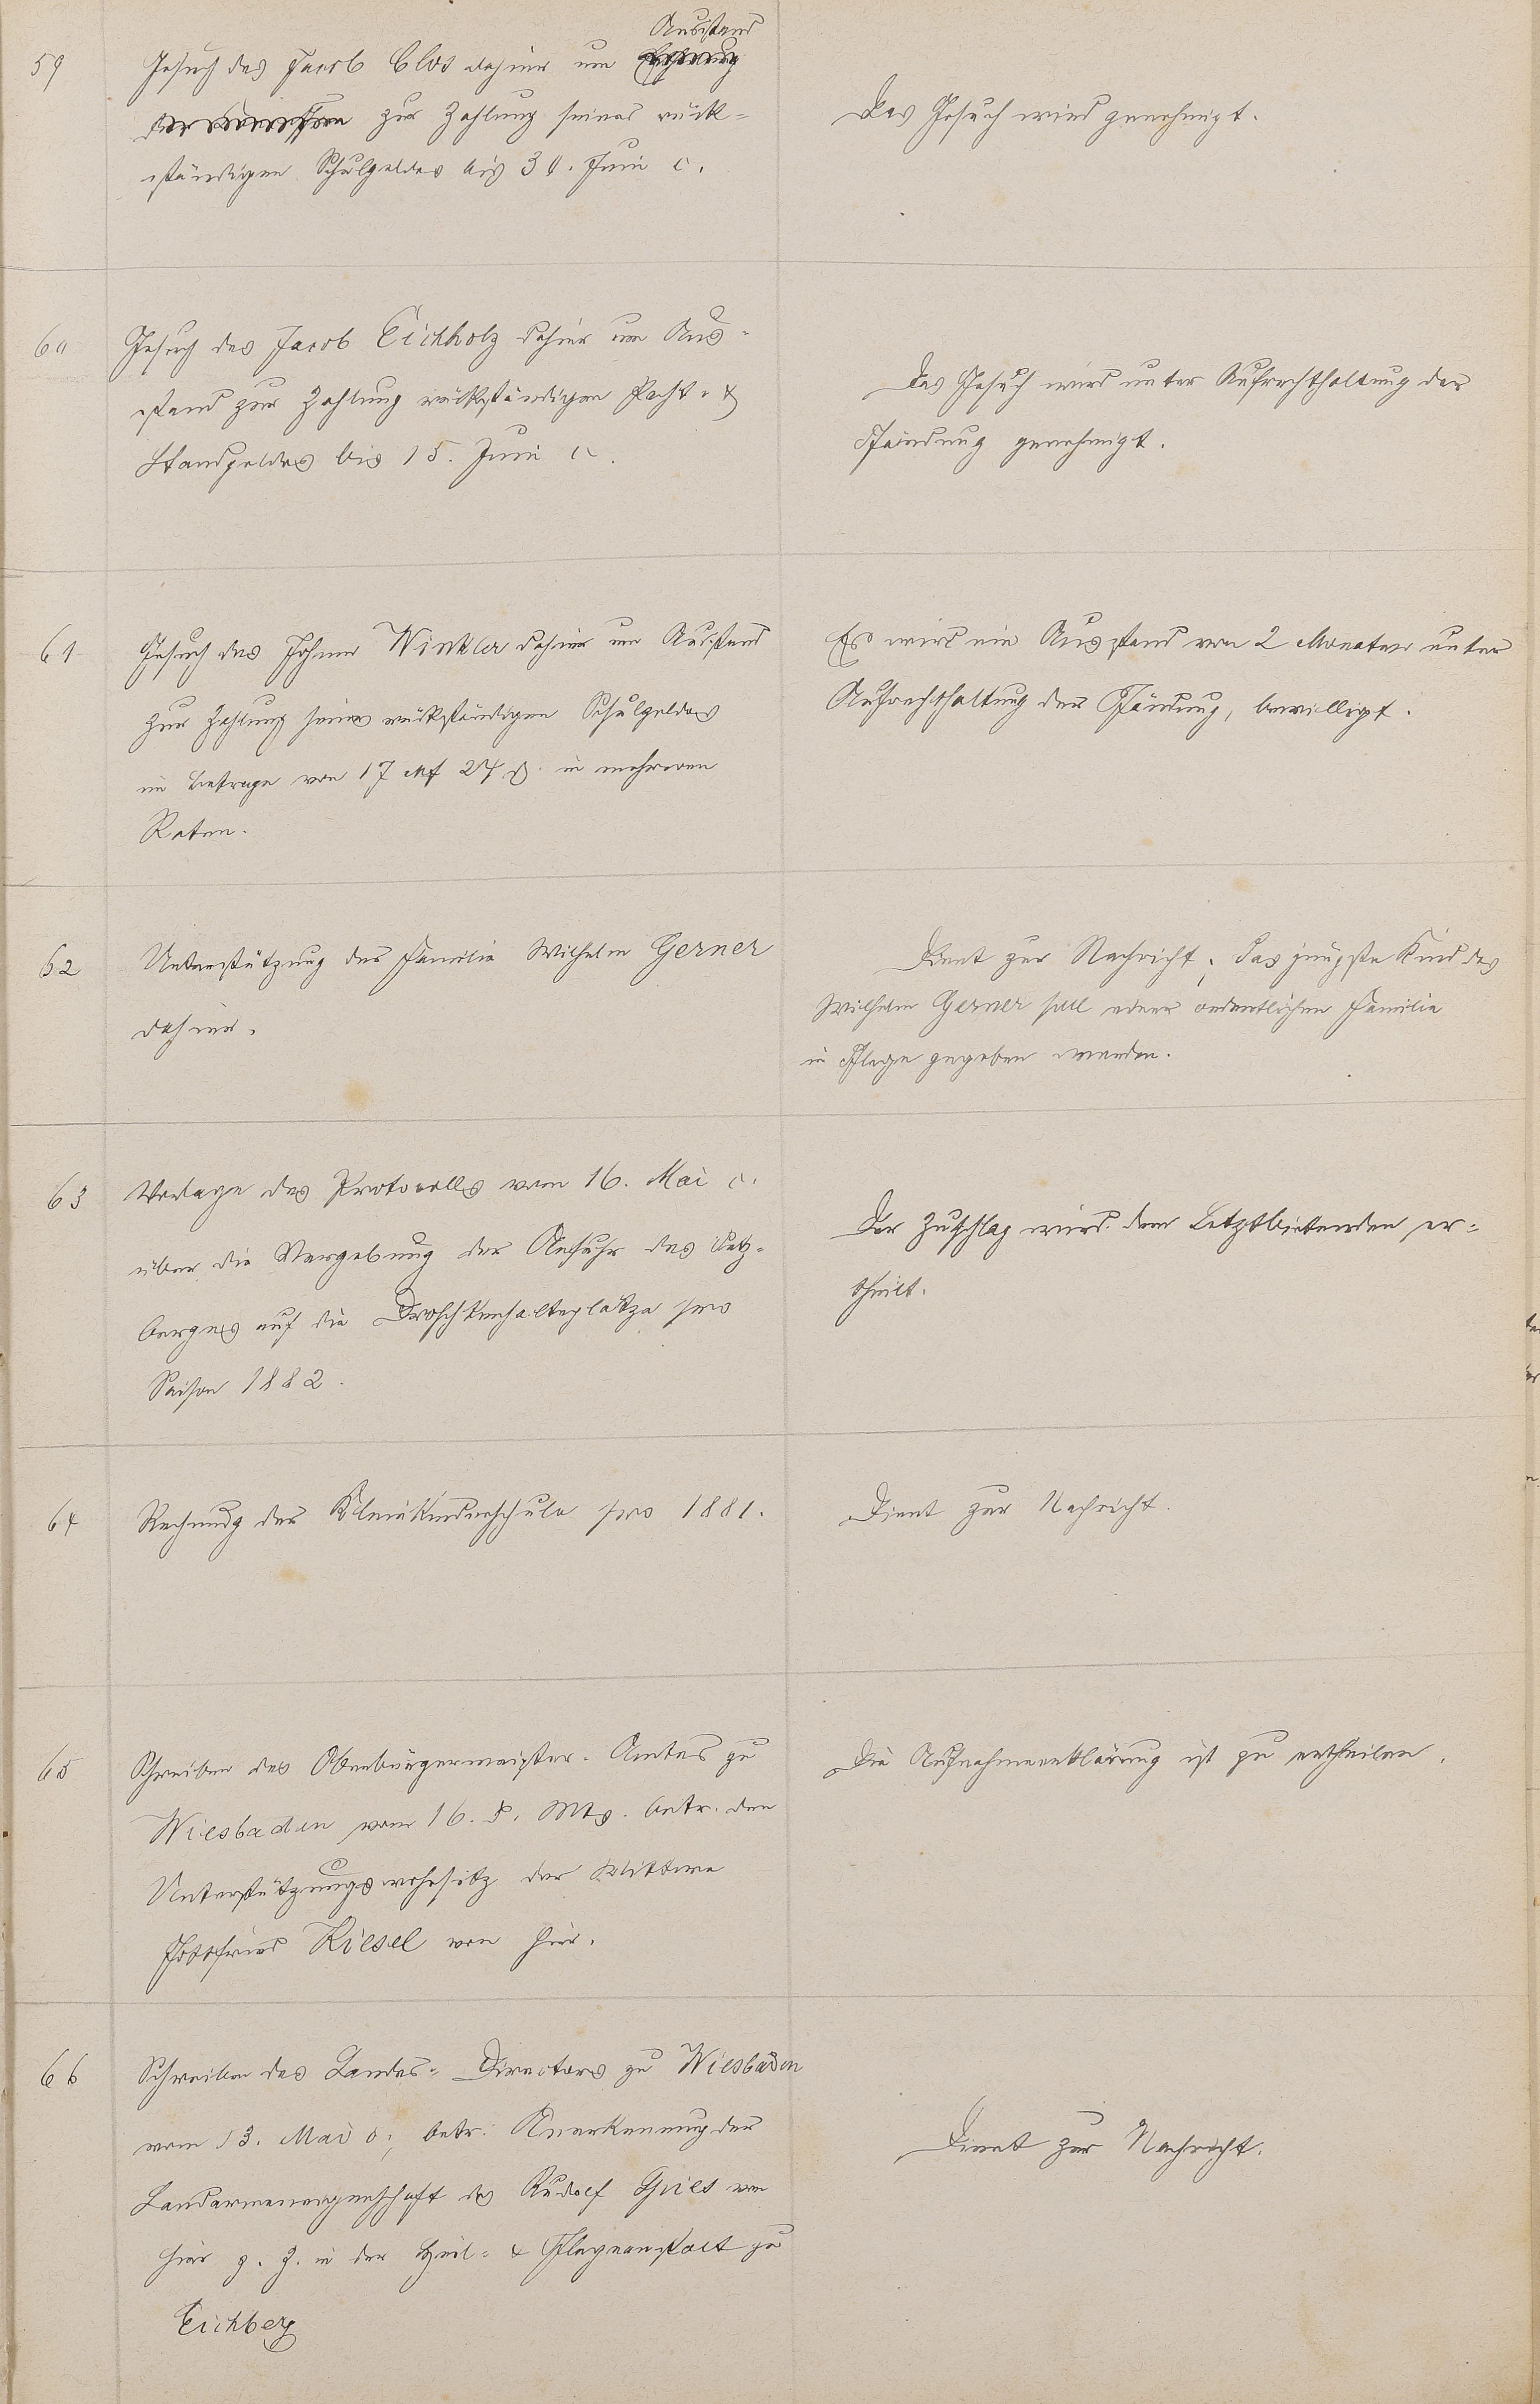 59
Gesuch des Jacob Clos dahier um Ausstand
zur Zahlung seines rück-
ständigen Schulgeldes bis 30. Juni c.
Das Gesuch wird genehmigt.
60
Gesuch des Jacob Eichholz dahier um Aus-
stand zur Zahlung rückständigen Pacht- &
Standgeldes bis 15. Juni c.
Das Gesuch wird unter Aufrechthaltung der
Pfändung genehmigt.
61
Gesuch des Johann Winkler dahier um Ausstand
zur Zahlung seines rückständigen Schulgeldes
im Betrage von 17 Mk 24 ₰. in mehreren
Raten.
Es wird ein Ausstand von 2 Monaten unter
Aufrechthaltung der Pfändung, bewilligt.
62
Unterstützung der Familie Wilhelm Gerner
dahier.
Dient zur Nachricht; das jüngste Kind des
Wilhelm Gerner soll einer ordentlichen Familie
in Pflege gegeben werden.
63
Vorlage des Protocolls vom 16. Mai c.
über die Vergebung der Abfuhr des
auf die Droschkenhalteplätze pro
Saison 1882.
Der Zuschlag wird dem Letztbietenden er-
theilt.
64
Rechnung der Kleinkinderschule pro 1881.
Dient zur Nachricht.
65
Schreiben des Oberbürgermeister-Amtes zu
Wiesbaden vom 16. d. Mts. betr. den
Unterstützungswohnsitz der Wittwe
Gottfried Kiesel von hier.
Die Aufnahmeerklärung ist zu ertheilen.
66
Schreiben des Landes-Directors zu Wiesbaden
vom 13. Mai c., betr. Anerkennung der
Landarmeneigenschaft des Rudolf von
hier z. Z. in der Heil- & Pflegeanstalt zu
Eichberg
Dient zur Nachricht.